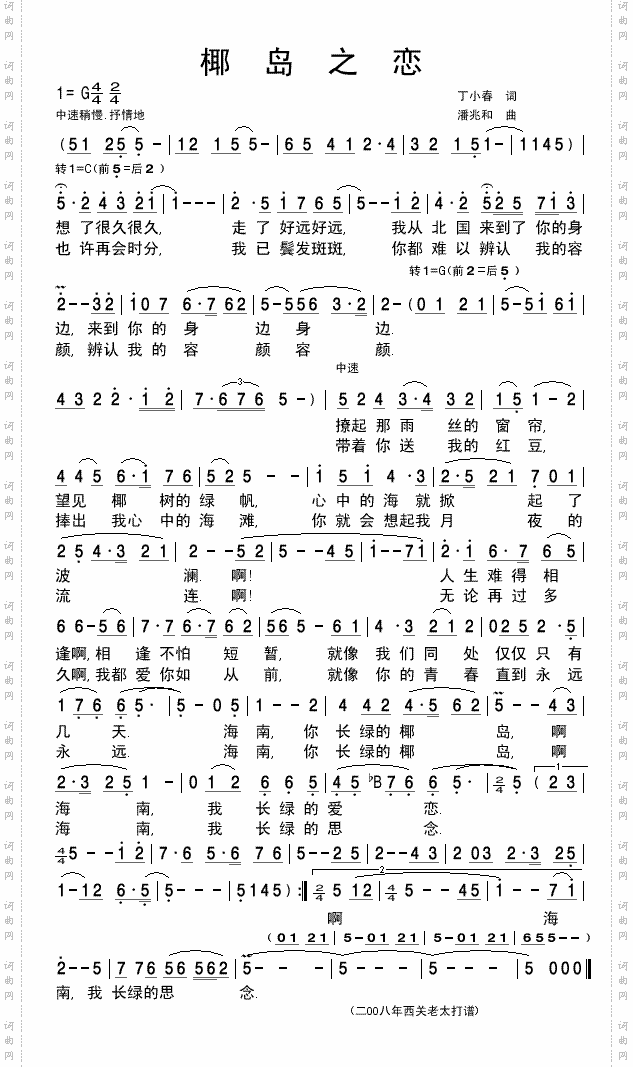 椰 岛 之 恋
1= G 4/4 2/4
丁小春 词
中速稍慢.抒情地
潘兆和 曲
(51 255-|12 1 55-|65 4 12·4|32 1 51-|1145)|
转1=C(前5=后2)
5·243 21|1---|2 ·51765|5--12|4·2 525 713|
想了很久很久, 走了好远好远, 我从北国来到了你的身
也许再会时分, 我已鬓发斑斑, 你都难以辨认 我的容
转1=G(前2=后5)
2--32|107 6·762|5-556 3·2|2-(01 21|5-51 61|
边, 来到你的身 边身 边.
颜, 辨认我的容 颜容 颜.
中速
4322·12|7·676 5-)|524 3·4 32|15 1-2|
撩起那雨 丝的窗帘,
带着你送 我的红豆,
445 6·1 76|525--|1 51 4·3|2·5 21 701|
望见 椰 树的绿帆, 心中的海就掀 起了
捧出 我心中的海滩, 你就会想起我月 夜的
25 4·3 21|2--52|5--45|1--71|2·1 6·7 65|
波 澜. 啊! 人生难得相
流 连. 啊! 无论再过多
66-56|7·7 6·7 62|565-61|4·3 212|0252·5|
逢啊,相逢不怕短暂, 就像我们同处仅仅只有
久啊,我都爱你如从前, 就像你的青春直到永远
176 65·|5-05|1--2|4 42 45 62|5--43|
几 天. 海南,你长绿的椰 岛, 啊
永 远. 海南,你长绿的椰 岛, 啊
2·3 25 1-|01 2 66 5|45 ♭B76 65·|2/4 5 (23|
1
海 南, 我长绿的爱 恋.
海 南, 我长绿的思 念.
4/4 5--12|7·6 5·6 76|5--25|2--43|2 03 2·3 25|
2
1-12 6·5|5---|5145):|2/4 5 12|4/4 5--45|1--71|
啊 海
(01 21|5-01 21|5-01 21|655--)
2--5|7 76 56 562|5---|5---|5---|5 000‖
南,我长绿的思 念.
(二00八年西关老太打谱)
词曲网